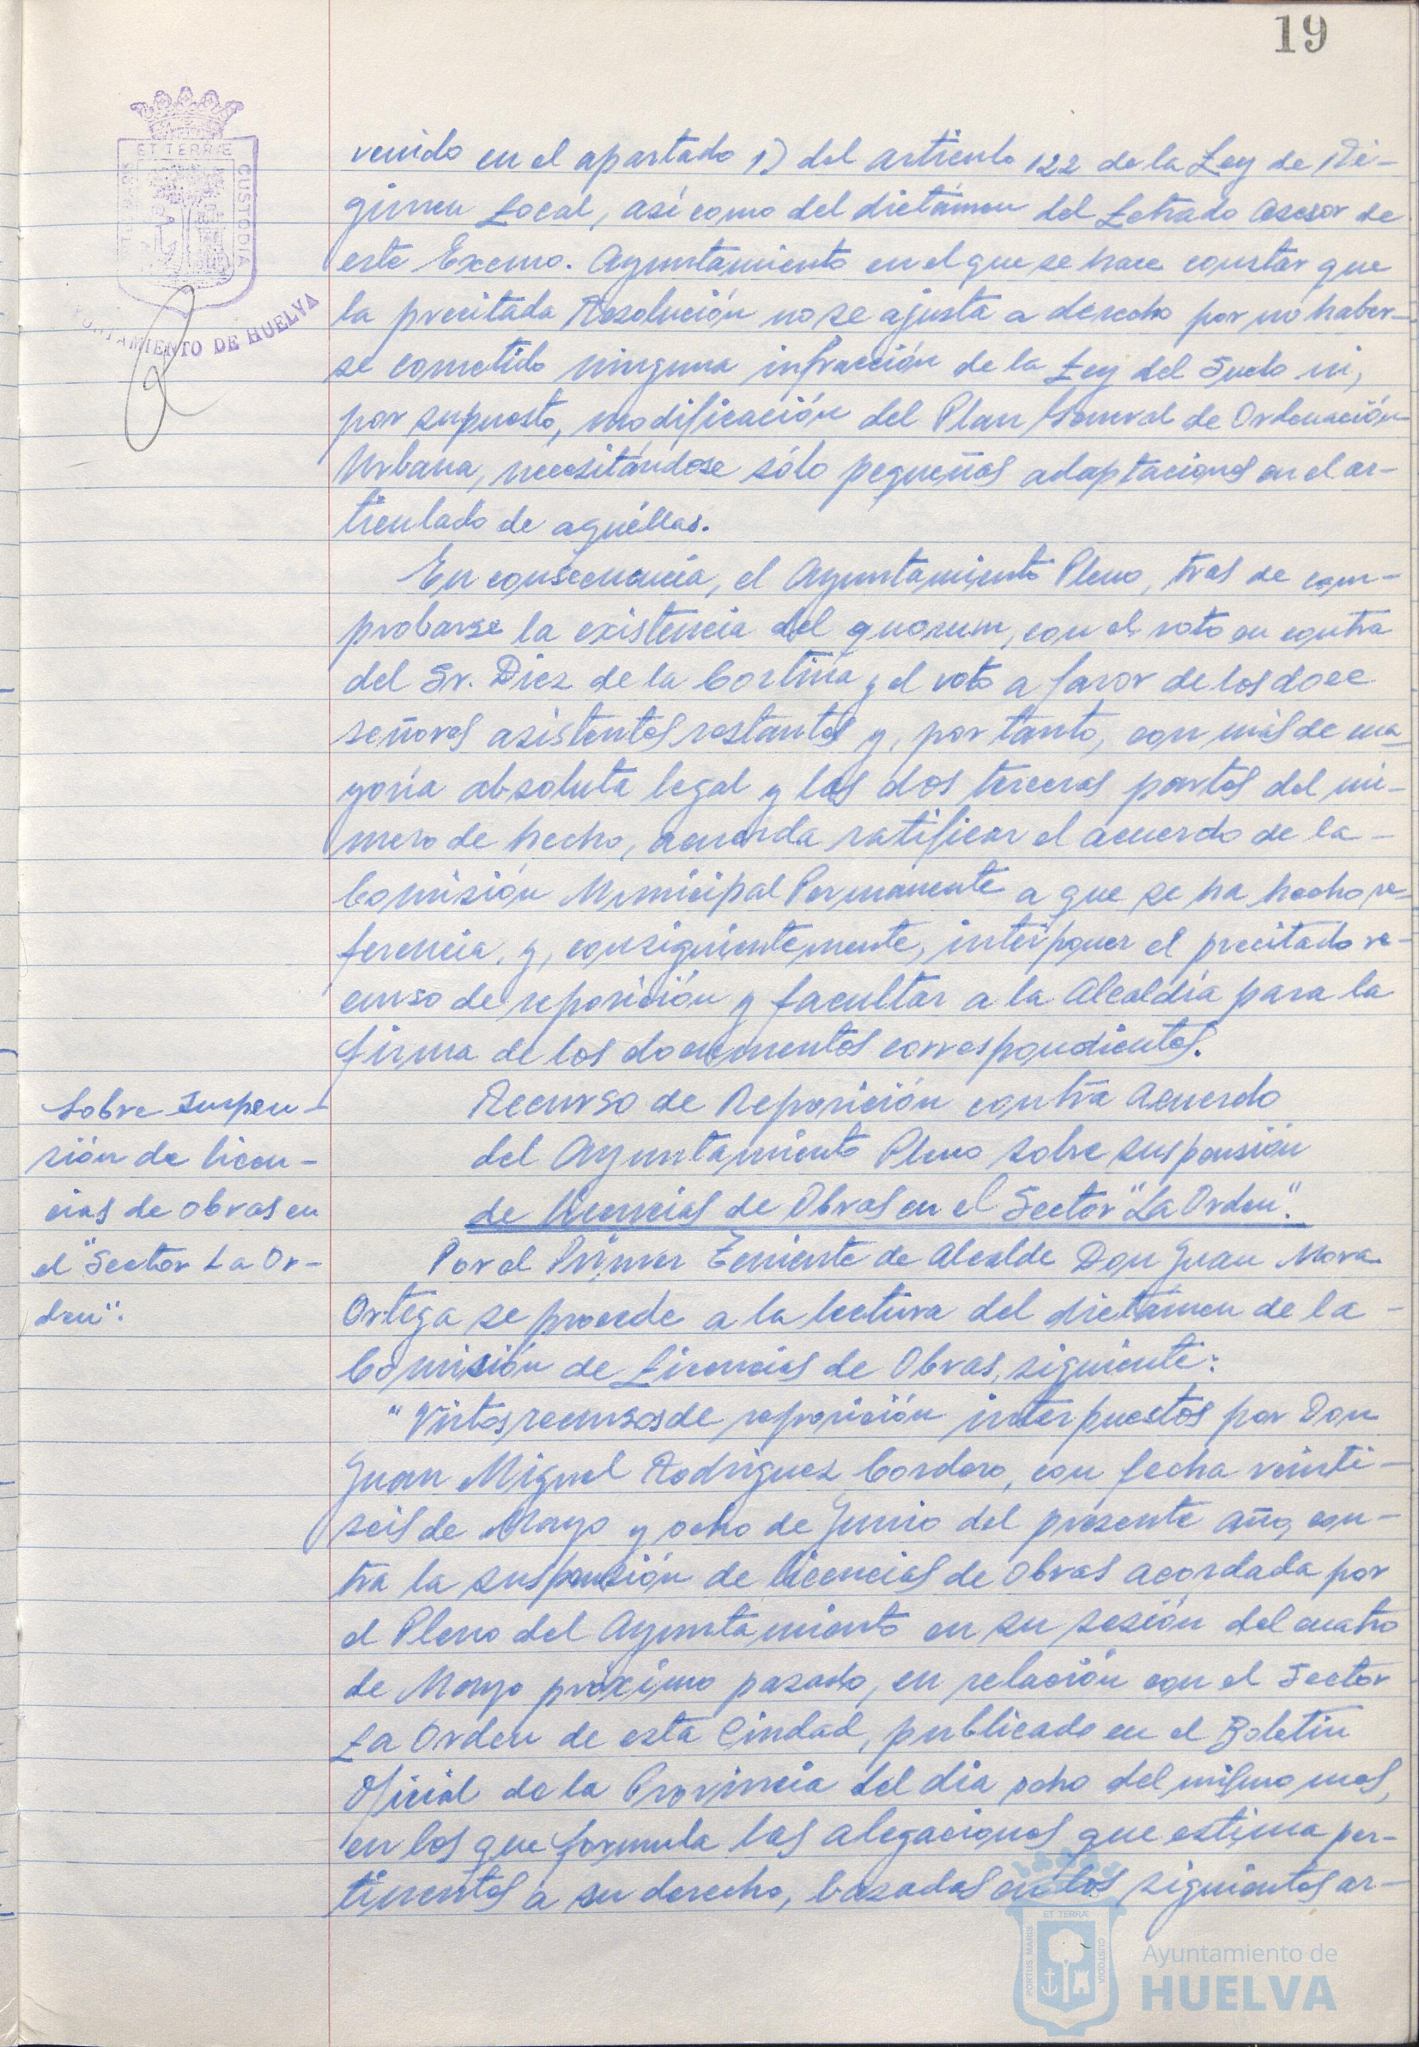 19
ET TERRÆ
CUSTODIA
AYUNTAMIENTO DE HUELVA
venido en el apartado 1) del artículo 122 de la Ley de Ré-
gimen Local, así como del dictámen del Letrado Asesor de
este Excmo. Ayuntamiento en el que se hace constar que
la precitada Resolución no se ajusta a derecho por no haber-
se cometido ninguna infracción de la Ley del Suelo ni,
por supuesto, modificación del Plan General de Ordenación
Urbana, necesitándose sólo pequeñas adaptaciones en el ar-
ticulado de aquéllas.
En consecuencia, el Ayuntamiento Pleno, tras de com-
probarse la existencia del quorum, con el voto en contra
del Sr. Diez de la Cortina y el voto a favor de los doce
señores asistentes restantes y, por tanto, con más de ma-
yoría absoluta legal y las dos terceras partes del nú-
mero de hecho, acuerda ratificar el acuerdo de la-
Comisión Municipal Permanente a que se ha hecho re-
ferencia, y, consiguientemente, interponer el precitado re-
curso de reposición y facultar a la Alcaldía para la
firma de los documentos correspondientes.
Sobre suspen-
sión de licen-
cias de obras en
el "Sector La Or-
den".
Recurso de Reposición contra Acuerdo
del Ayuntamiento Pleno sobre suspensión
de licencias de Obras en el Sector "La Orden".
Por el Primer Teniente de Alcalde Don Juan Mora
Ortega se procede a la lectura del dictámen de la-
Comisión de Licencias de Obras, siguiente:
"Vistos recursos de reposición interpuestos por Don
Juan Miguel Rodriguez Cordero, con fecha veinti-
seis de Mayo y ocho de Junio del presente año, con-
tra la suspensión de licencias de obras acordada por
el Pleno del Ayuntamiento en su sesión del cuatro
de Mayo próximo pasado, en relación con el Sector
La Orden de esta Ciudad, publicado en el Boletín
Oficial de la Provincia del dia ocho del mismo mes,
en los que formula las alegaciones que estima per-
tinentes a su derecho, basadas en los siguientes ar-
PORTUS MARIS
ET TERRÆ
CUSTODIA
Ayuntamiento de
HUELVA